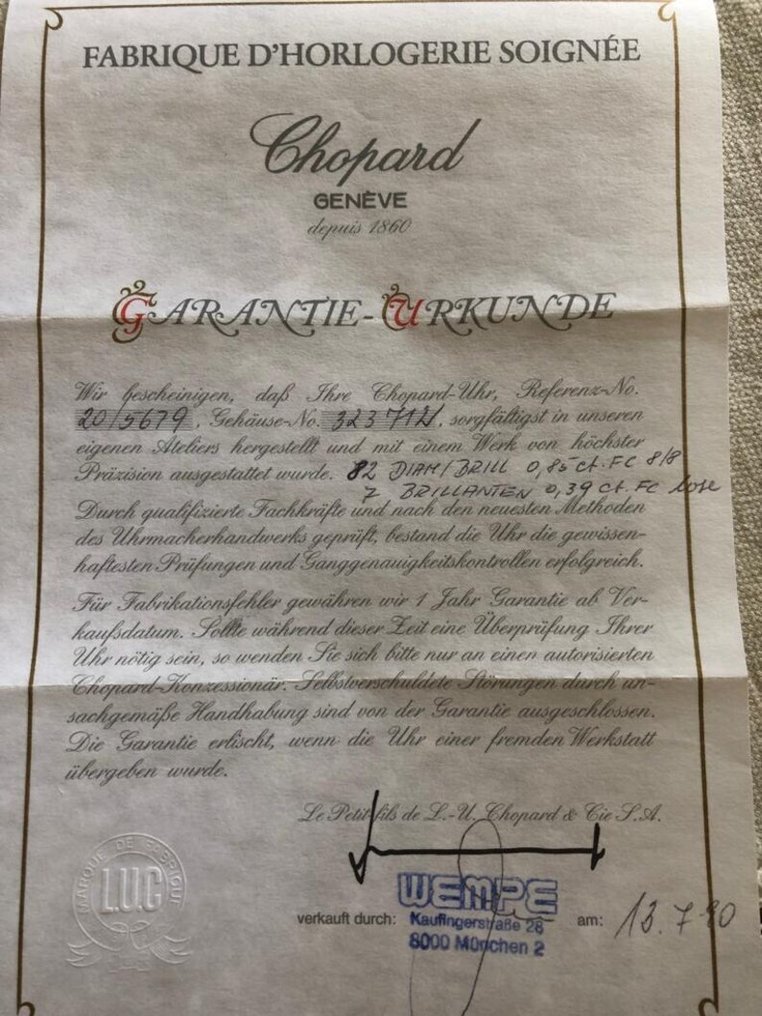 FABRIQUE D'HORLOGERIE SOIGNÉE
Chopard
GENÈVE
depuis 1860
GARANTIE-URKUNDE
Wir bescheinigen, daß Ihre Chopard-Uhr, Referenz-No.
20/5679, Gehäuse-No. , sorgfältigst in unseren
eigenen Ateliers hergestellt und mit einem Werk von höchster
Präzision ausgestattet wurde. 82 DIAM/BRILL 0,85 ct. FC 8/8
7 BRILLANTEN 0,39 ct. FC lose
Durch qualifizierte Fachkräfte und nach den neuesten Methoden
des Uhrmacherhandwerks geprüft, bestand die Uhr die gewissen-
haftesten Prüfungen und Ganggenauigkeitskontrollen erfolgreich.
Für Fabrikationsfehler gewähren wir 1 Jahr Garantie ab Ver-
kaufsdatum. Sollte während dieser Zeit eine Überprüfung Ihrer
Uhr nötig sein, so wenden Sie sich bitte nur an einen autorisierten
Chopard-Konzessionär. Selbstverschuldete Störungen durch un-
sachgemäße Handhabung sind von der Garantie ausgeschlossen.
Die Garantie erlischt, wenn die Uhr einer fremden Werkstatt
übergeben wurde.
Le Petit-fils de L.-U. Chopard & Cie S.A.
MARQUE DE FABRIQUE
L.U.C
WEMPE
verkauft durch: Kaufingerstraße 28 am: 13.7.90
8000 München 2